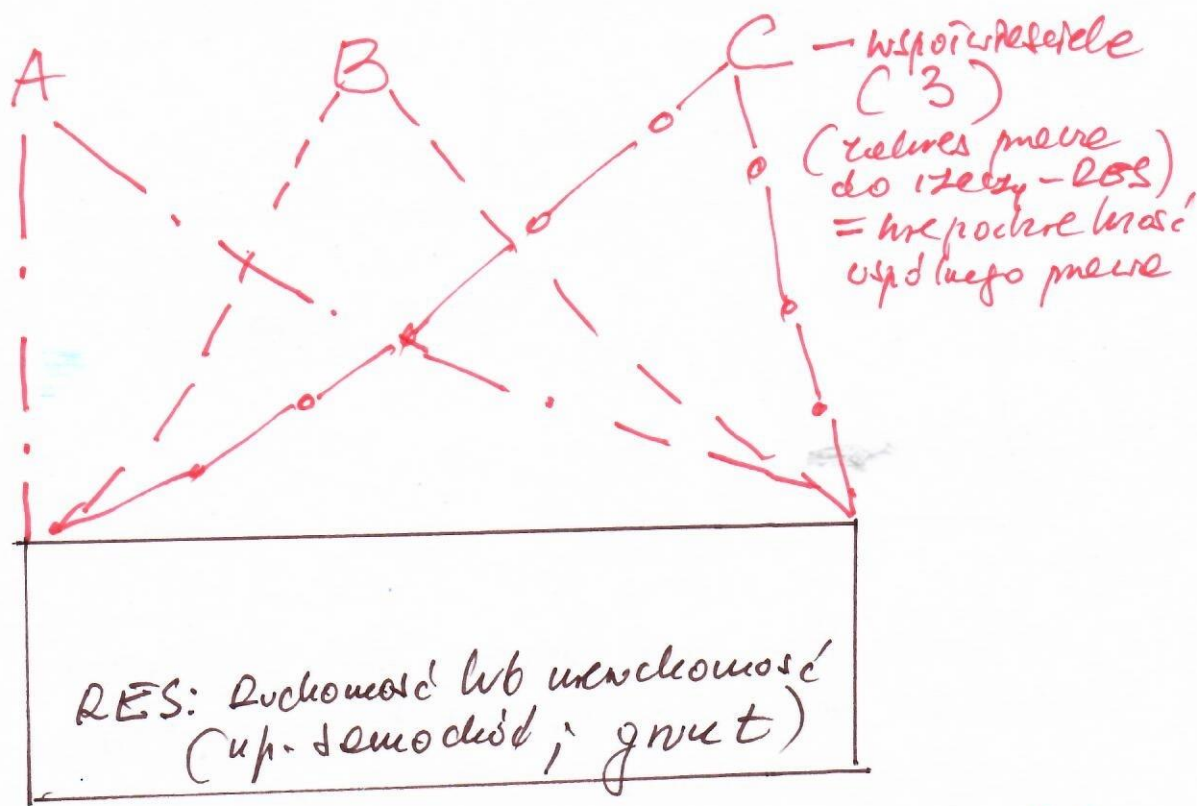 A B C – współwłaściciele
(3)
(zakres prawa
do rzeczy – RES)
= niepodzielność
wspólnego prawa
RES: Ruchomość lub nieruchomość
(np. samochód ; grunt)